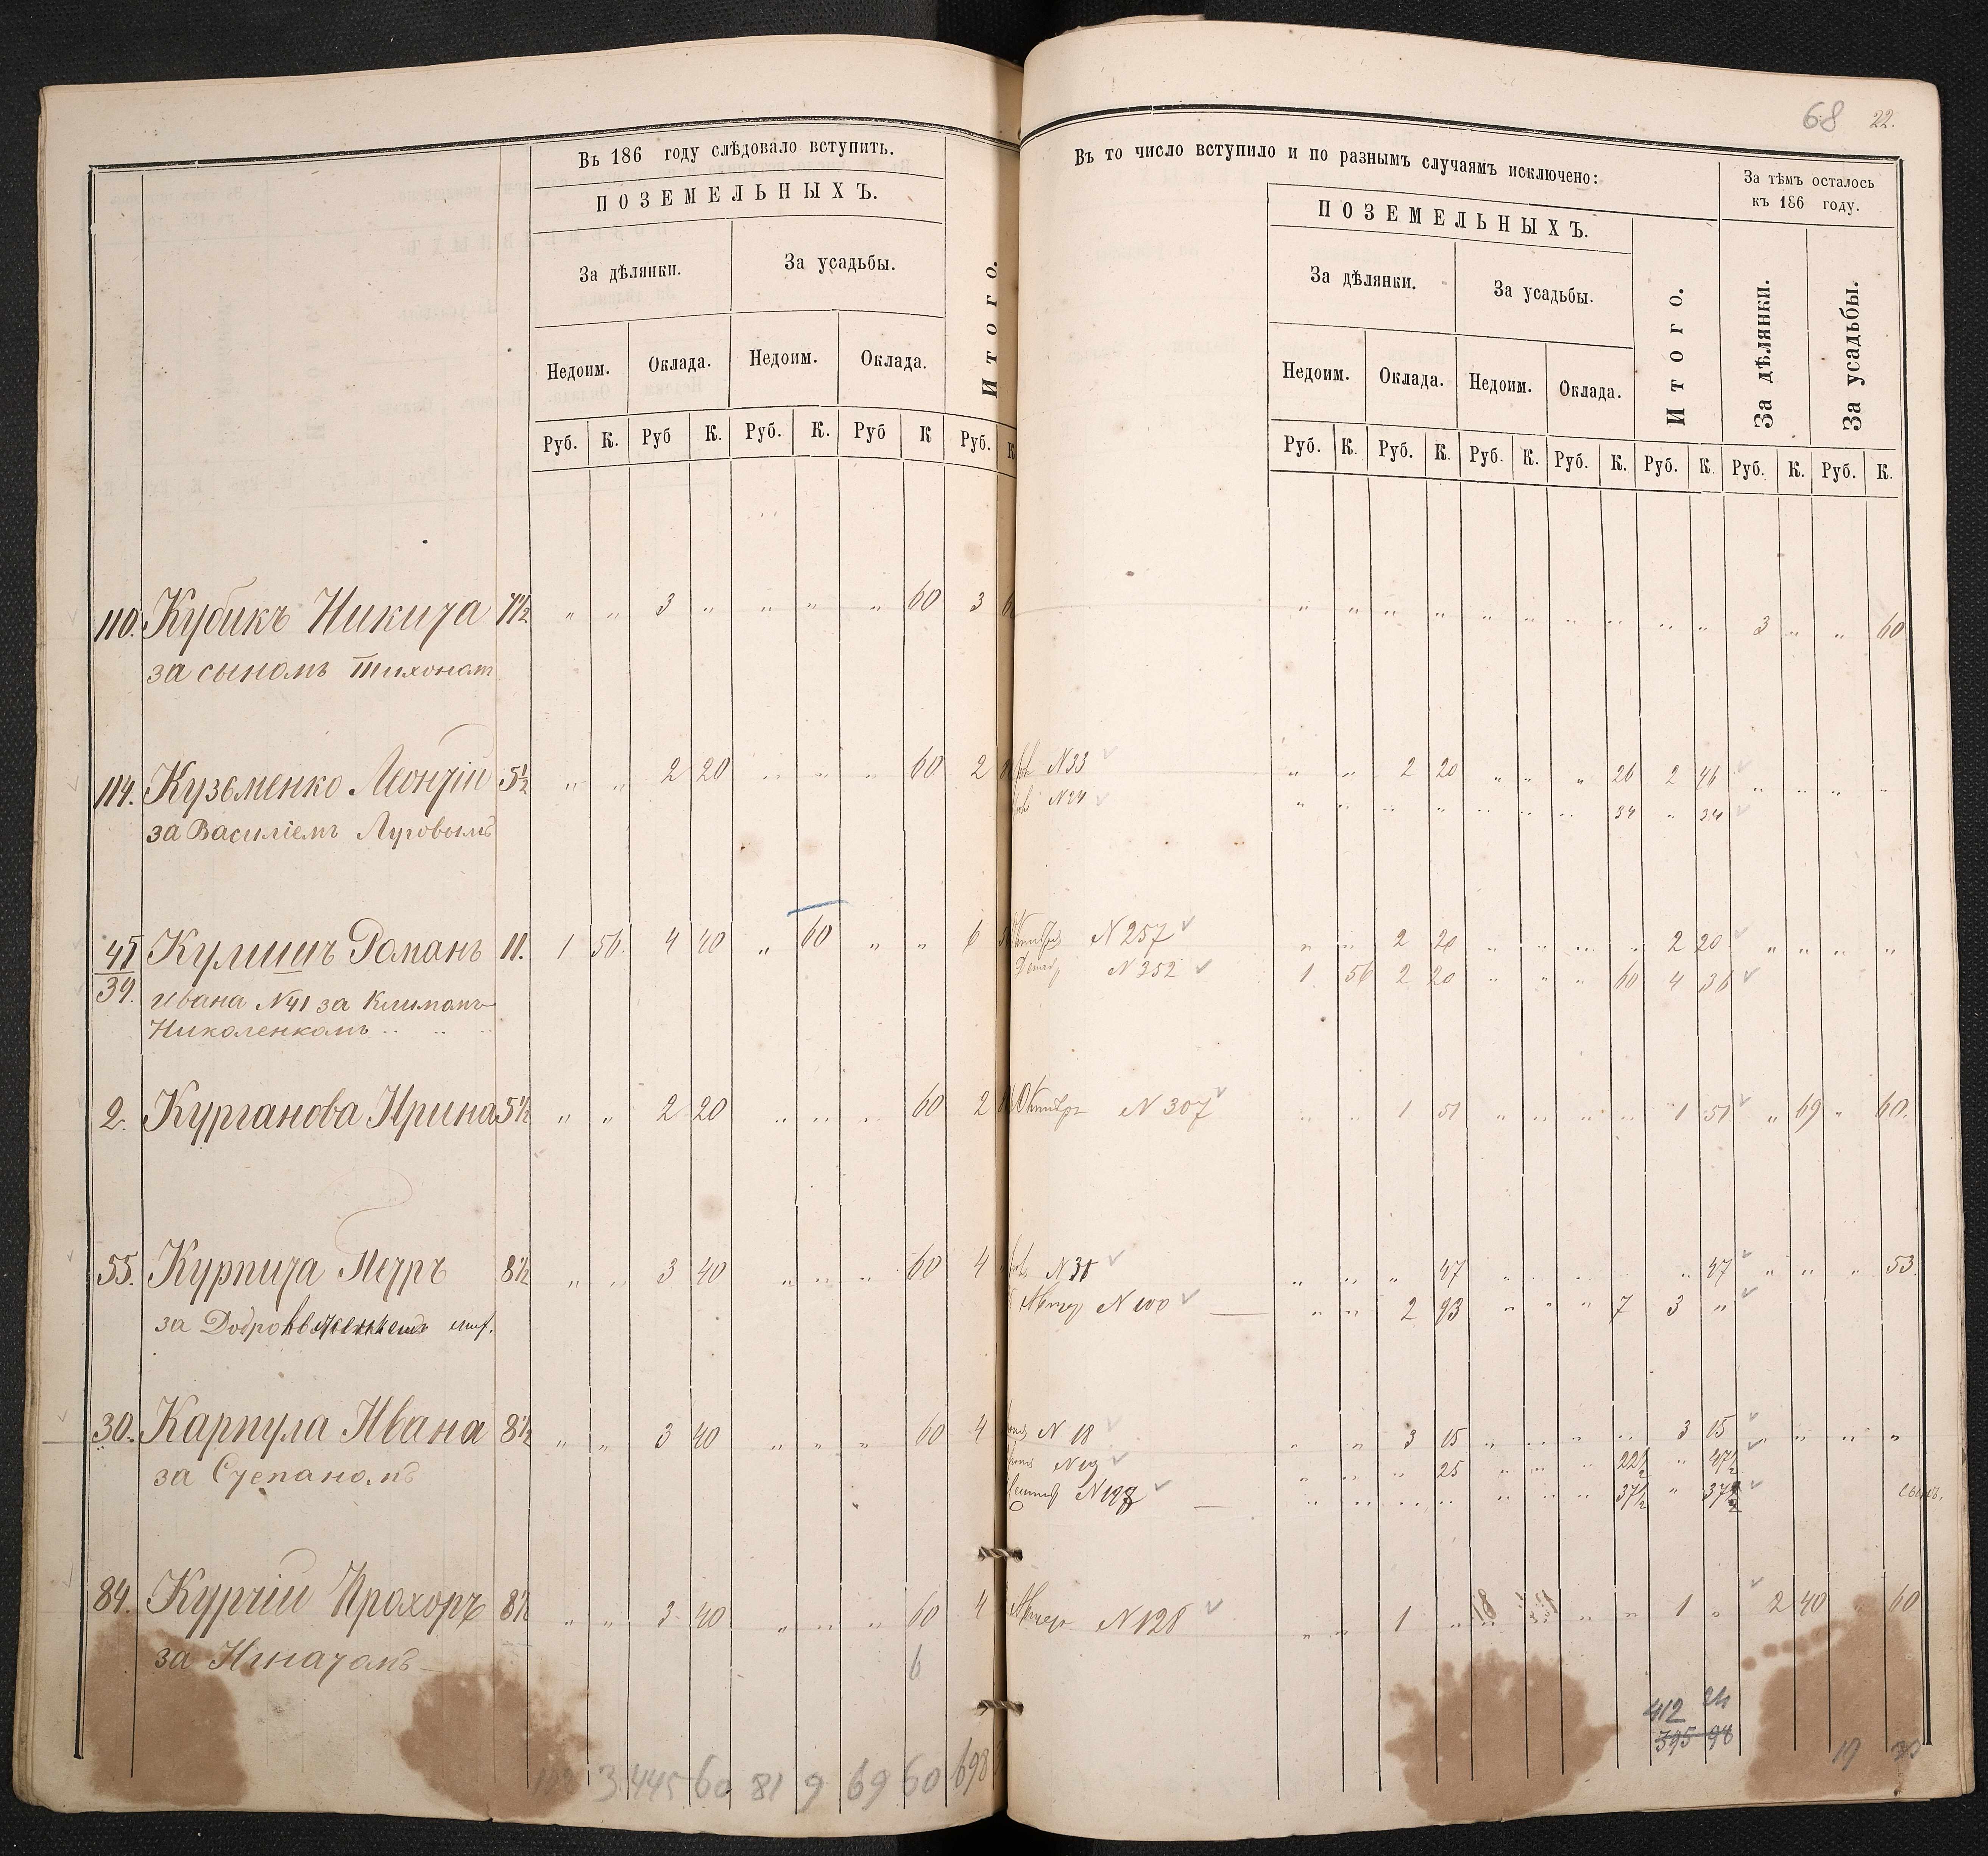 68 22.
Въ 186 году слѣдовало вступить.
ПОЗЕМЕЛЬНЫХЪ.
За дѣлянки. За усадьбы. Итого.
Недоим. Оклада. Недоим. Оклада.
Руб. К. Руб К. Руб. К. Руб К Руб. К
110. Кубикъ Никита 7½ " " 3 " " " " 60 3 60
за сыномъ Тихономъ
114. Кузьменко Леонтій 5½ " " 2 20 " " " 60 2
за Василіемъ Луговымъ
45 Кулишъ Романъ 11. 1 56. 4 40 " 60 " " 6
39. Ивана N41 за Климомъ
Николенкомъ
2. Курганова Ирина 5½ " " 2 20 " " " 60 2
55. Курпита Петръ 8½ " " 3 40 " " " 60 4
за
30. Карпула Ивана 8½ " " 3 40 " " " 60 4
за Степаномъ
84. Курчій Прохоръ 8½ " " 3 40 " " " 60 4
за Игнатомъ
6
3 445 60 81 9 69 60 698
Въ то число вступило и по разнымъ случаямъ исключено:
За тѣмъ осталось
къ 186 году.
ПОЗЕМЕЛЬНЫХЪ.
За дѣлянки. За усадьбы. Итого. За дѣлянки. За усадьбы.
Недоим. Оклада. Недоим. Оклада.
Руб. К. Руб. К. Руб. К. Руб. К. Руб. К. Руб. К. Руб. К.
" " " " " " " " " " 3 " " 60
N33 " " 2 20 " " " 26 2 46 " " " "
N24 " " " " " " " 34 " 34
N257 " " 2 20 " " " " 2 20 " " " "
N352 1 56 2 20 " " " 60 4 36
Октября N307 " " 1 51 " " " " 1 51 " 69 " 60.
N31 " " " 47 " " " " " 47 " " " 53.
N100 " " 2 93 " " " 7 3 "
N18 " " 3 15 " " " " 3 15 " " " "
N19 " " " 25 " " " 22½ " 47½
N198 " " " " " " " 37½ " 37½
N128 " " 1 " " " " " 1 " 2 40 " 60
412 24
395 98
19